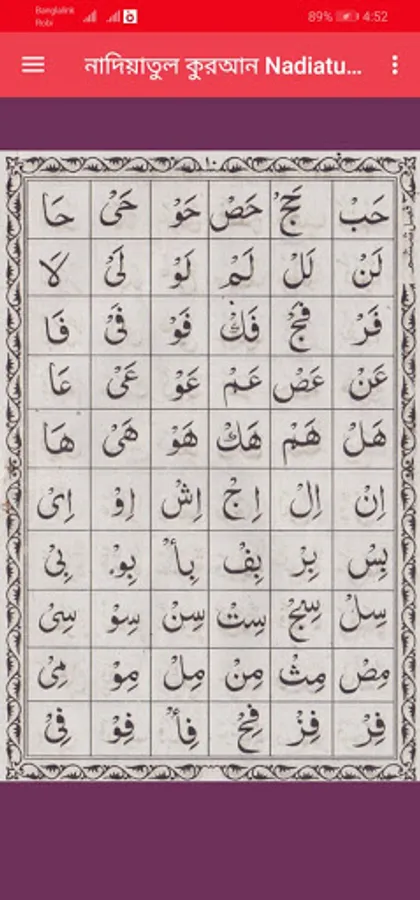 Banglalink
Robi
89% 4:52
নাদিয়াতুল কুরআন Nadiatu...
١٠
حَبْ حَجْ حَصْ حَوْ حَىْ حَا
لَنْ لَلْ لَمْ لَوْ لَىْ لَا
فَرْ فَجْ فَكْ فَوْ فَىْ فَا
عَنْ عَصْ عَمْ عَوْ عَىْ عَا
هَلْ هَمْ هَكْ هَوْ هَىْ هَا
اِنْ اِلْ اِجْ اِشْ اِوْ اِىْ
بِسْ بِرْ بِفْ بِأْ بِوْ بِىْ
سِلْ سِجْ سِتْ سِنْ سِوْ سِىْ
مِصْ مِثْ مِنْ مِلْ مِوْ مِىْ
فِرْ فِزْ فِحْ فِأْ فِوْ فِىْ